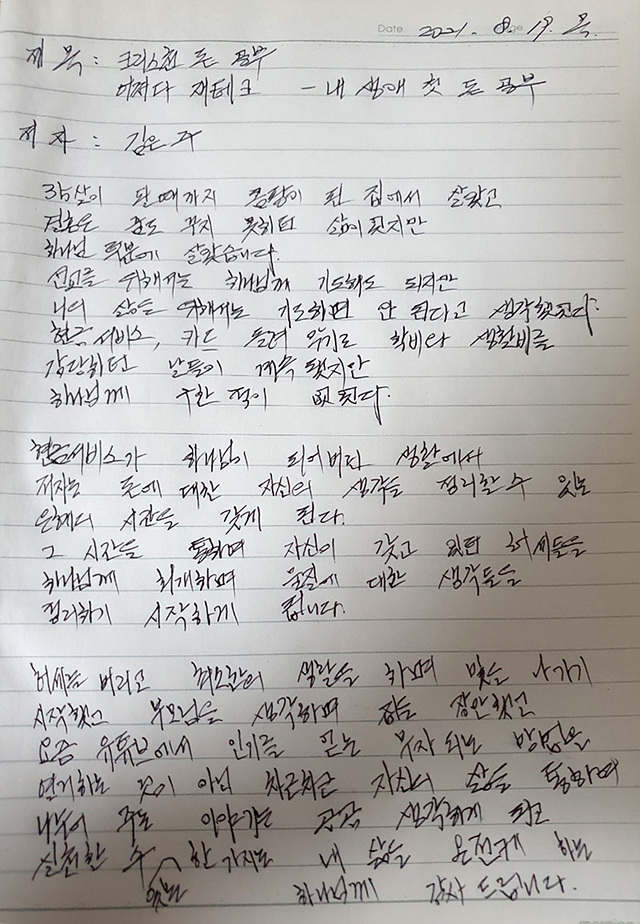 Date. 2021. 8. 19. 목.
제 목 : 크리스천 돈 공부
어쩌다 재테크 - 내 생애 첫 돈 공부
저 자 : 김은주
35살이 될때까지 곰팡이 핀 집에서 살았고
결혼은 꿈도 꾸지 못하던 삶이었지만
하나님 덕분에 살았습니다.
선교를 위해서는 하나님께 기도해도 되지만
나의 삶을 위해서는 기도하면 안 된다고 생각했었다.
현금서비스, 카드 돌려 막기로 학비와 생활비를
감당하던 날들이 계속 됐지만
하나님께 구한 적이 없었다.
현금서비스가 하나님이 되어버린 생활에서
저자는 돈에 대한 자신의 생각을 정리할 수 있는
은혜의 시간을 갖게 된다.
그 시간을 통하며 자신이 갖고 있던 허세들을
하나님께 회개하며 물질에 대한 생각들을
정리하기 시작하게 됩니다.
허세를 버리고 최소한의 생활을 하며 빚을 나가기
시작했고 부모님을 생각하며 집을 장만했던
요즘 유튜브에서 인기를 얻는 부자 되는 방법을
열거하는 것이 아닌 차근차근 자신의 삶을 통하여
나누어 주는 이야기는 곰곰 생각하게 되고
실천할 수 있는 한 가지는 내 삶을 온전케 하는
하나님께 감사 드립니다.